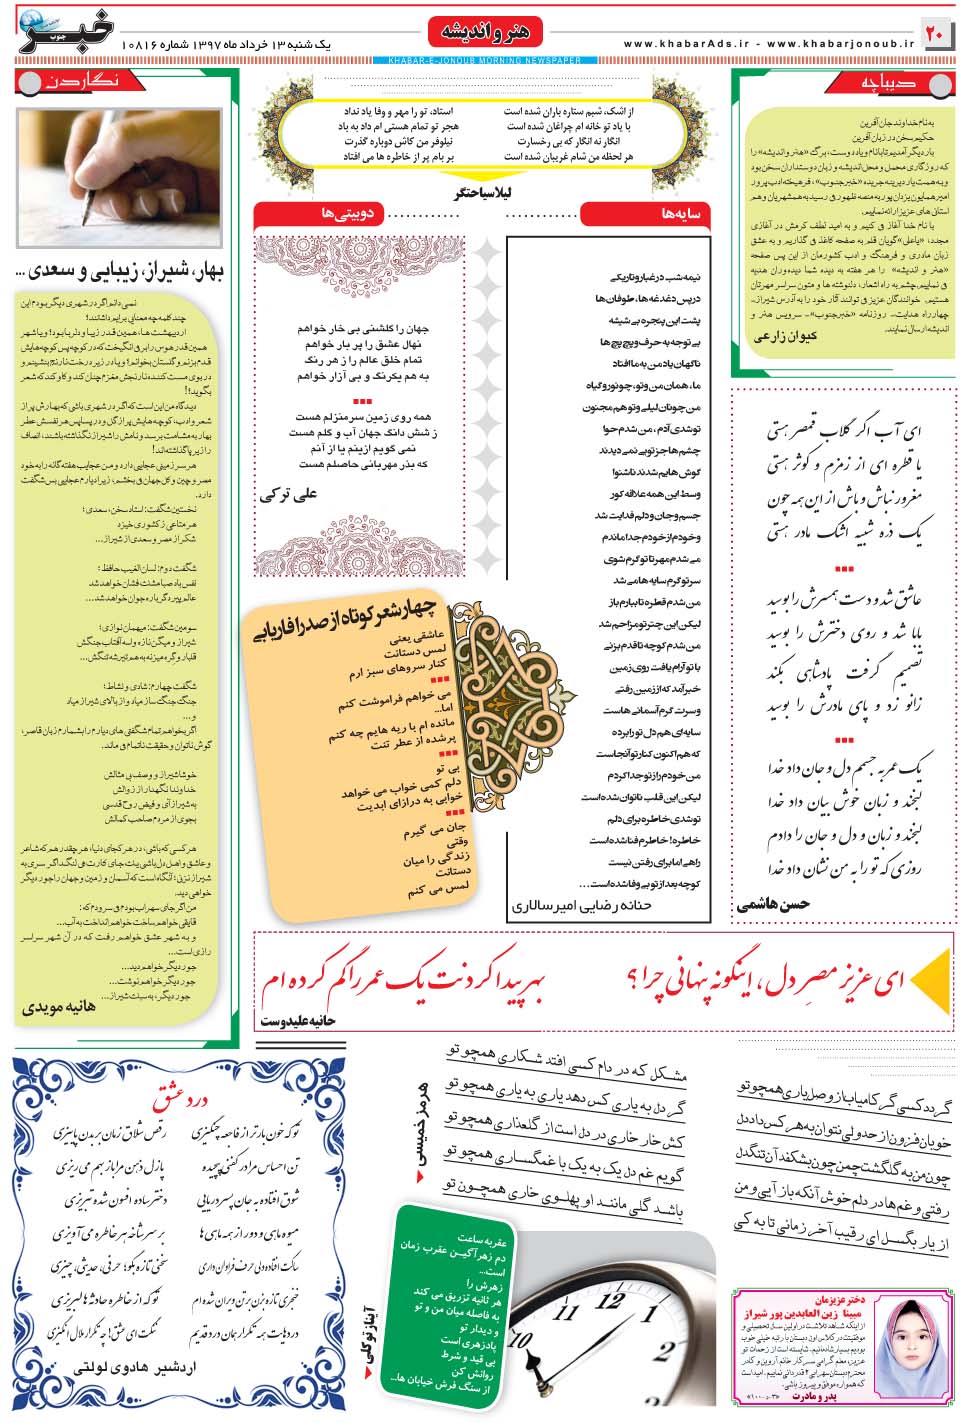 ۲۰
www.khabarAds.ir - www.khabarjonoub.ir
هنر و اندیشه
یک شنبه ۱۳ خرداد ماه ۱۳۹۷ شماره ۱۰۸۱۶
خبر
جنوب
KHABAR-E-JONOUB MORNING NEWSPAPER
دیباچه
به نام خداوند جان آفرین
حکیم سخن در زبان آفرین
بار دیگر آمدیم تا با نام و یاد دوست، برگ «هنر و اندیشه» را
که روزگاری محمل و محل اندیشه و زبان دوستداران سخن بود
و به همت یار دیرینه جریده «خبرجنوب»، فرهیخته ادب پرور
امیر همایون یزدان پور به منصه ظهور می رسید به همشهریان و هم
استانی های عزیز ارائه نماییم.
با نام خدا آغاز می کنیم و به امید لطف کرمش در آغازی
مجدد، «یاعلی» گویان قلم به صفحه کاغذ می گذاریم و به عشق
زبان مادری و فرهنگ و ادب کشورمان از این پس صفحه
«هنر و اندیشه» را هر هفته به دیده شما دیده وران هدیه
می نماییم، چشم به راه اشعار، دلنوشته ها و متون سراسر مهرتان
هستیم. خوانندگان عزیز می توانند آثار خود را به آدرس شیراز،
چهارراه هدایت، روزنامه «خبرجنوب»- سرویس هنر و
اندیشه ارسال نمایند.
کیوان زارعی
از اشک، شبم ستاره باران شده است
با یاد تو خانه ام چراغان شده است
انگار نه انگار که بی رخسارت
هر لحظه من شام غریبان شده است
استاد، تو را مهر و وفا یاد نداد
هجر تو تمام هستی ام داد به باد
نیلوفر من کاش دوباره گذرت
بر بام پر از خاطره ها می افتاد
لیلا سیاحتگر
نگاردن
بهار، شیراز، زیبایی و سعدی ...
نمی دانم اگر در شهری دیگر بودم این
چند کلمه چه معنایی برایم داشتند!
اردیبهشت ها، همین قدر زیبا و دلربا بود! و یا شهر
همین قدر هوس را بر می انگیخت که در کوچه پس کوچه هایش
قدم بزنم و گلستان بخوانم! و یا در زیر درخت نارنج بنشینم و
در بوی مست کننده نارنجش مغزم چنان کند و کاو کند که شعر
بگوید؟!
دیدگاه من این است که اگر در شهری باشی که بهارش پر از
شعر و ادب، کوچه هایش پر از گل و در پساپس هر نفسش عطر
بهار به مشامت برسد و نامش را شیراز نگذاشته باشند، انصاف
را زیر پا گذاشته اند!
هر سرزمینی عجایبی دارد و من عجایب هفتگانه را به خود
مصر و چین و کل جهان می بخشم، زیرا دیارم عجایبی بس شگفت
دارد.
نخستین شگفت: استاد سخن، سعدی؛
هر متاعی ز کشوری خیزد
شکر از مصر و سعدی از شیراز...
شگفت دوم: لسان الغیب حافظ؛
نفس باد صبا مشک فشان خواهد شد
عالم پیر دگرباره جوان خواهد شد...
سومین شگفت: میهمان نوازی؛
شگفت چهارم: شادی و نشاط؛
جنگ جنگ ساز میاد و از بالای شیراز میاد
و...
اگر بخواهم تمام شگفتی های دیارم را بشمارم زبان قاصر،
گوش ناتوان و حقیقت ناتمام می ماند.
خوشا شیراز و وصف بی مثالش
خداوندا نگهدار از زوالش
به شیراز آی و فیض روح قدسی
بجوی از مردم صاحب کمالش
هر کسی که باشی، در هر کجای دنیا، هر چقدر هم که شاعر
و عاشق و اهل دل باشی یک جای کارت می لنگد اگر سری به
شیراز نزنی؛ آنگاه است که آسمان و زمین و جهان را جور دیگر
خواهی دید.
من اگر جای سهراب بودم می سرودم که:
قایقی خواهم ساخت خواهم انداخت به آب...
و به شهر عشق خواهم رفت که در آن شهر سراسر
رازی است...
جور دیگر خواهم دید...
جور دیگر خواهم نوشت...
جور دیگر، به سبک شیراز...
هانیه مویدی
سایه ها
نیمه شب در غبار و تاریکی
در پس دغدغه ها، طوفان ها
پشت این پنجره بی شیشه
بی توجه به حرف و پچ پچ ها
ناگهان یاد من به ما افتاد
ما، همان من و تو، چو نور و گیاه
من چونان لیلی و تو هم مجنون
تو شدی آدم، من شدم حوا
چشم ها جز تو بی نمی دیدند
گوش هایم شدند ناشنوا
وسط این همه علاقه کور
جسم و جان و دلم فدایت شد
و خودم از خودم جدا ماندم
می شدم مهر تا تو گرم شوی
سر تو گرم سایه ها می شد
من شدم قطره تا ببارم باز
لیکن این چتر تو مزاحم شد
من شدم کوچه تا قدم بزنی
با تو آرام یافت روی زمین
خبر آمد که از زمین رفتی
و سرت گرم آسمانی هاست
سایه ای هم دل تو را برده
که هم اکنون کنار تو آنجاست
من خودم را ز تو جدا کردم
لیکن این قلب ناتوان شده است
تو شدی خاطره برای دلم
خاطره! خاطرم فنا شده است
راهی اما برای رفتن نیست
کوچه بعد از تو بی وفا شده است ...
حنانه رضایی امیرسالاری
دوبیتی ها
جهان را گلشنی بی خار خواهم
نهال عشق را پر بار خواهم
تمام خلق عالم را ز هر رنگ
به هم یکرنگ و بی آزار خواهم
همه روی زمین سرمنزلم هست
ز شش دانگ جهان آب و گلم هست
نمی گویم ازینم یا از آنم
که بذر مهربانی حاصلم هست
علی ترکی
چهار شعر کوتاه از صدرا فاریابی
عاشقی یعنی
لمس دستانت
کنار سروهای سبز ارم
می خواهم فراموشت کنم
اما...
مانده ام با ریه هایم چه کنم
پرشده از عطر تنت
بی تو
دلم کمی خواب می خواهد
خوابی به درازای ابدیت
جان می گیرم
وقتی
زندگی را میان
دستانت
لمس می کنم
ای آب اگر گلاب قمصر هستی
یا قطره ای از زمزم و کوثر هستی
مغرور نباش و باش از این همه چون
یک ذره شبیه اشک مادر هستی
عاشق شد و دست همسرش را بوسید
بابا شد و روی دخترش را بوسید
تصمیم گرفت پادشاهی بکند
زانو زد و پای مادرش را بوسید
یک عمر به جسم دل و جان داد خدا
لبخند و زبان خوش بیان داد خدا
لبخند و زبان و دل و جان را دادم
روزی که تو را به من نشان داد خدا
حسن هاشمی
ای عزیز مصرِ دل، اینگونه پنهانی چرا؟ بهر پیدا کردنت یک عمر راگم کرده ام
حانیه علیدوست
گردد کسی گر کامیاب از وصل یاری همچو تو
خوبان فزون از حد ولی نتوان به هر کس داد دل
چون من به گلگشت چمن چون بشکفد آن تنگدل
رفتی و غم ها در دلم خوش آنکه باز آیی و من
از یار بگسل ای رقیب آخر زمانی تا به کی
مشکل که در دام کسی افتد شکاری همچو تو
گر دل به یاری کس دهد باری به یاری همچو تو
کش خار خاری در دل است از گلعذاری همچو تو
گویم غم دل یک به یک با غمگساری همچو تو
باشد گلی مانند او پهلوی خاری همچون تو
هرمز خمیسی
درد عشق
تو که خون بارتر از فاجعه چنگیزی
رقص شلاق زمان بر بدن پاییزی
تن احساس مرا در کفنی پیچیده
پازل ذهن مرا باز بهم می ریزی
شوق افتاده به جان پسر دریایی
دختر ساده افسون شده تبریزی
میوه ماهی و دور از همه ماهی ها
بر سر شانه هر خاطره می آویزی
ساکت افتاده ولی حرف فراوان داری
سخنی تازه بگو؛ حرفی، حدیثی، چیزی
خنجری تازه بزن بر تن ویران شده ام
تو که از خاطره حادثه ها لبریزی
درد هایت همه تکرار همان درد قدیم
نکبت ای عشق! چه تکرار ملال انگیزی
اردشیر هادوی لولتی
عقربه ساعت
دم زهرآگین عقرب زمان
است...
زهرش را
هر ثانیه تزریق می کند
به فاصله میان من و تو
و دیدار تو
پادزهری است
بی قید و شرط
روانش کن
از سنگ فرش خیابان ها...
آیناز توکلی
11 12 1
10 2
3
دختر عزیزمان
مبینا زین العابدین پور شیراز
از اینکه شاهد تلاشت در اولین سال تحصیلی و
موفقیتت در کلاس اول دبستان با رتبه خیلی خوب
بودیم بسیار شادمانیم. شایسته است از زحمات تو
عزیز، معلم گرامی سرکار خانم آروین و کادر
محترم دبستان سهرابی ۲ قدردانی نماییم. امید است
که همواره موفق و پیروز باشی.
پدر و مادرت